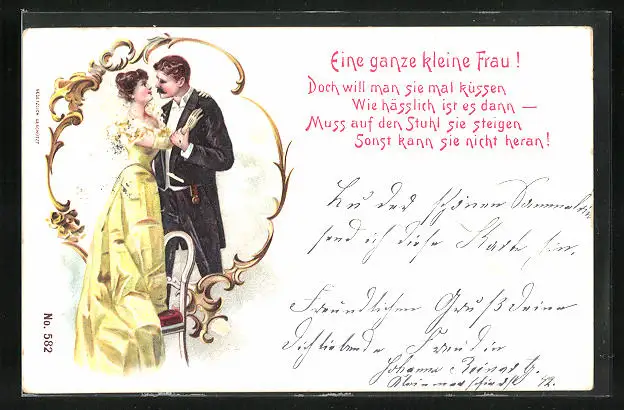 Eine ganze kleine Frau!
Doch will man sie mal küssen
Wie hässlich ist es dann —
Muss auf den Stuhl sie steigen
Sonst kann sie nicht heran!
GESETZLICH GESCHÜTZT
No. 582
Zu der schönen
send ich diese Karte hin.
Freundlichen Gruß Deine
Dichliebende Freundin
Johanna